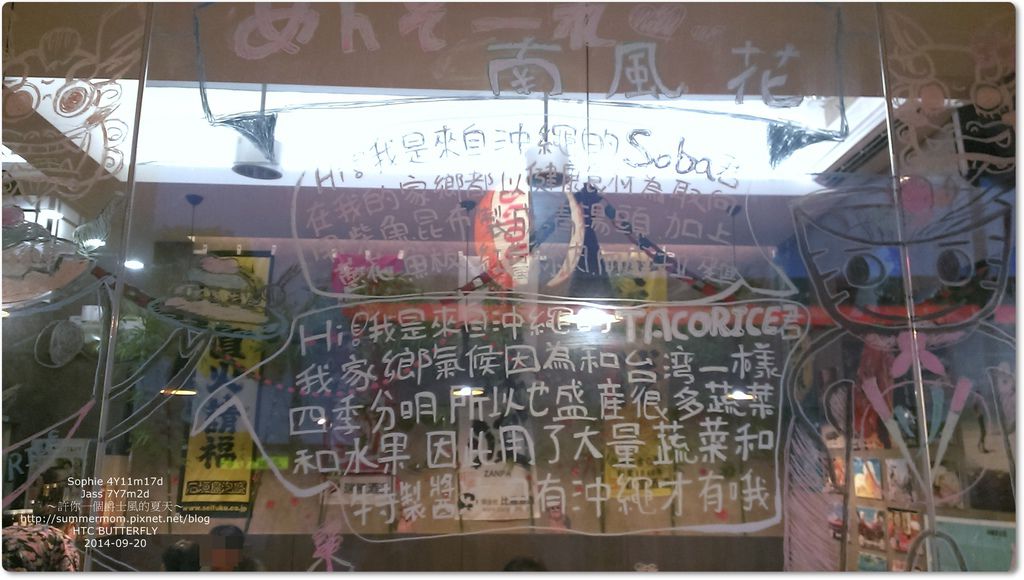 めんそーれ
南風花
Hi!我是來自沖繩的Soba君
在我的家鄉都以健康食材為取向
柴魚昆布製 湯頭 加上
Hi!我是來自沖繩的TACORICE君
我家鄉氣候因為和台湾一樣
四季分明所以也盛産很多蔬菜
和水果因此用了大量蔬菜和
特製醬 有沖繩才有哦
請福
ZANPA
www.seifuku.co.jp
Sophie 4Y11m17d
Jass 7Y7m2d
～許你一個爵士風的夏天～
http://summermom.pixnet.net/blog
HTC BUTTERFLY
2014-09-20